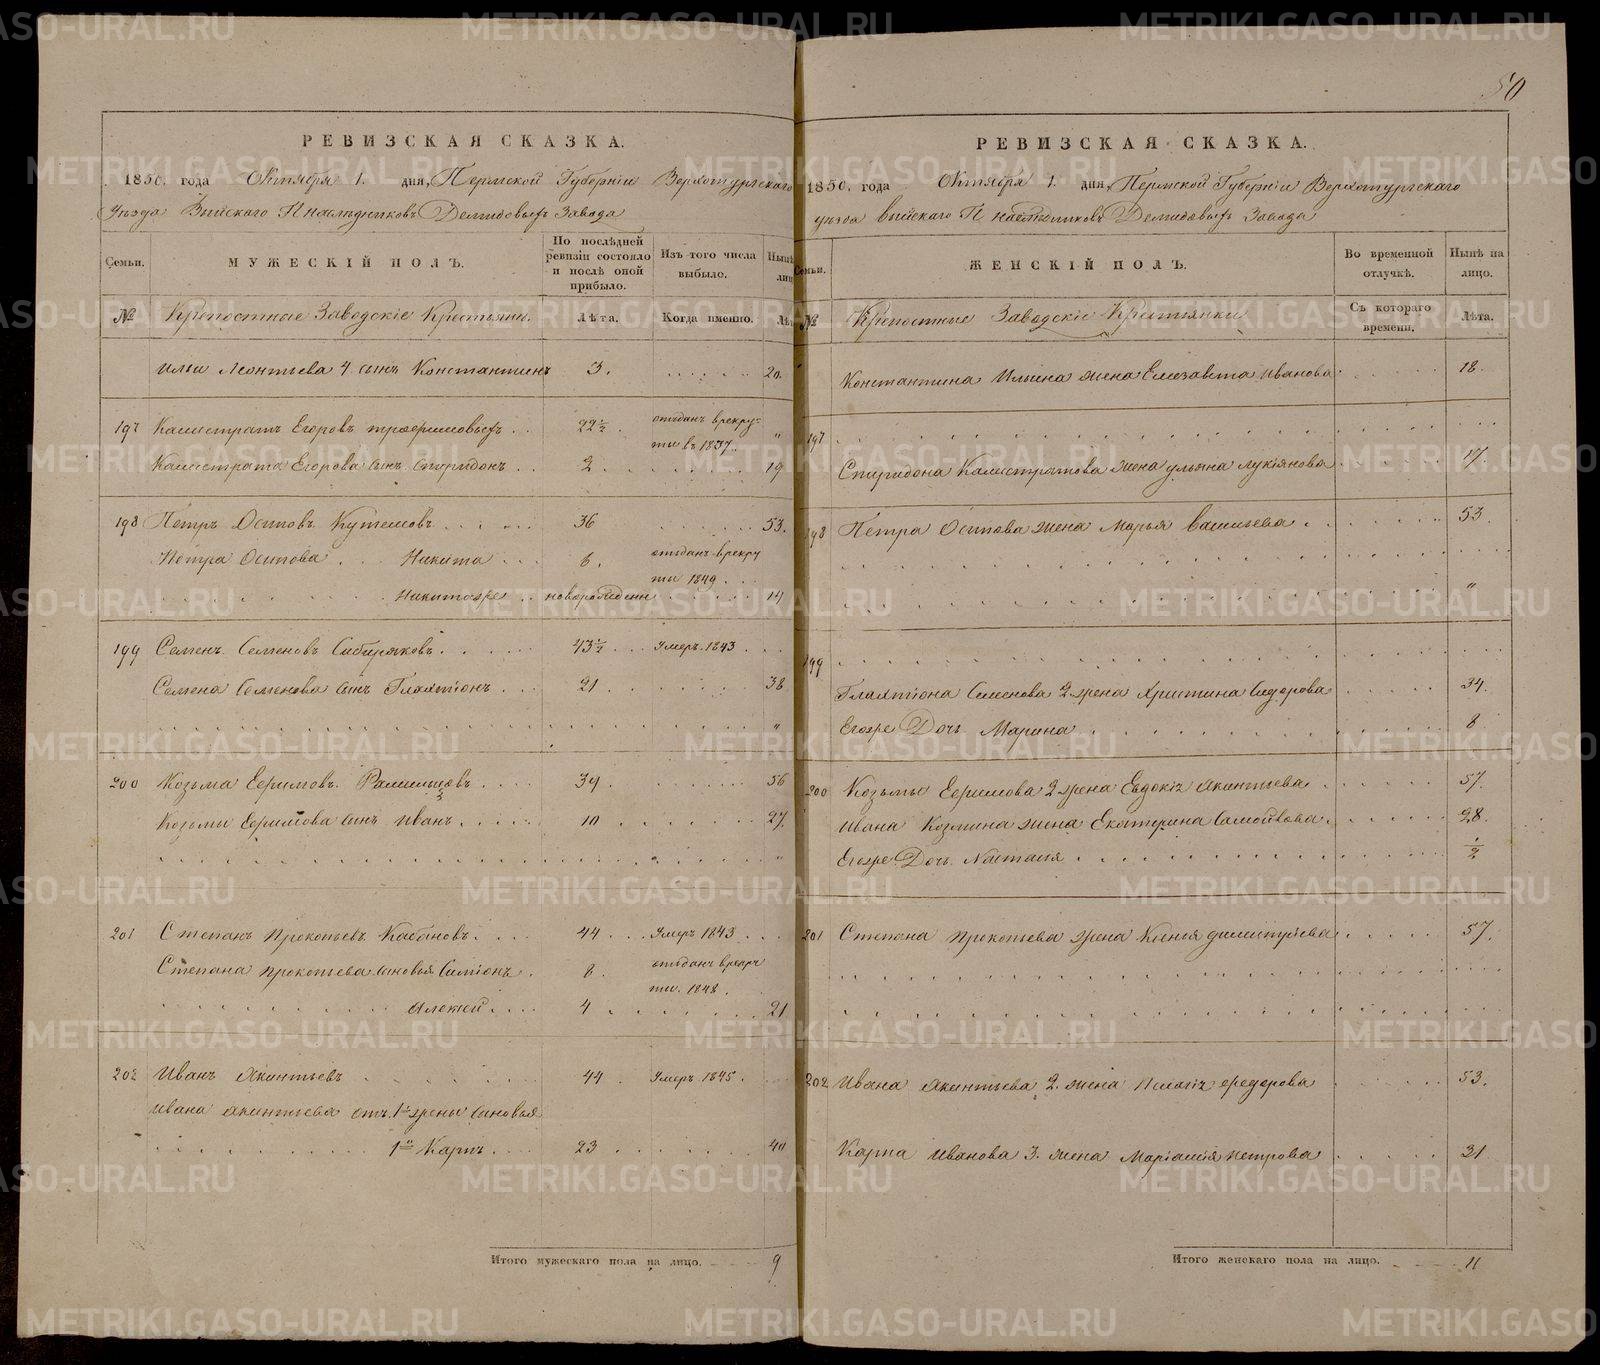 50
РЕВИЗСКАЯ СКАЗКА.
1850. года Октября 1. дня, Пермской Губерніи Верхотурскаго
Уѣзда Выйскаго Г.г. наслѣдниковъ Демидовыхъ Завода
Семьи.
МУЖЕСКІЙ ПОЛЪ.
По послѣдней ревизіи состояло и послѣ оной прибыло.
Изъ того числа выбыло.
Нынѣ
№
Крѣпостные Заводскіе Крестьяне.
Лѣта.
Когда именно.
Ильи Леонтьева 4 сынъ Константинъ 3. 20.
197 Калистратъ Егоровъ Трофимовыхъ 22½ отданъ в рекру-
ты въ 1837. "
Калистрата Егорова сынъ Спиридонъ 2 19
198 Петръ Осиповъ 36 53.
Петра Осипова Никита 6. отданъ в рекру
ты 1849
Никита новорожденн 14
199 Семенъ Семеновъ Сибиряковъ 43½ Умеръ 1843
Семена Семенова сынъ Галактіонъ 21 38
"
200 Козьма Ефимовъ 34 56
Козьмы Ефимова сынъ Иванъ 10 27.
"
201 Степанъ Прокопьевъ Кабановъ. 44 Умеръ 1843
Степана Прокопьева сыновья Симіонъ 8. отданъ в рекру
ты. 1848.
Алексѣй 4 21
202 Иванъ Акинтьевъ 44 Умеръ 1845.
Ивана Акинтьева отъ 1й жены сыновья
1й Карпъ 23 40
Итого мужескаго пола на лицо. 9
РЕВИЗСКАЯ СКАЗКА.
1850. года Октября 1. дня, Пермской Губерніи Верхотурскаго
уѣзда Выйскаго Г.г. наслѣдниковъ Демидовыхъ Завода
Семьи.
ЖЕНСКІЙ ПОЛЪ.
Во временной отлучкѣ.
Нынѣ на лицо.
№
Крѣпостные Заводскіе Крестьянки
Съ котораго времени.
Лѣта.
Константина Ильина жена Елизавета Иванова 18.
197
Спиридона Калистратова жена Ульяна Лукіянова 17.
198 Петра Осипова жена Марья Васильева 53.
"
199
Галактіона Семенова 2 жена Христина Сидорова 34.
Егоже Дочь Марина 8
200 Козьмы Ефимова 2 жена Евдокія Акинтьева 57.
Ивана Козмина жена Екатерина Самойлова 28.
Егоже Дочь Настасия ½
201 Степана Прокопьева жена Ксенья Димитріева 57.
202 Ивана Акинтьева 2. жена Пелагія Федорова 53.
Карпа Иванова 3. жена Маріамія Петрова 31
Итого женскаго пола на лицо. 11
METRIKI.GASO-URAL.RU